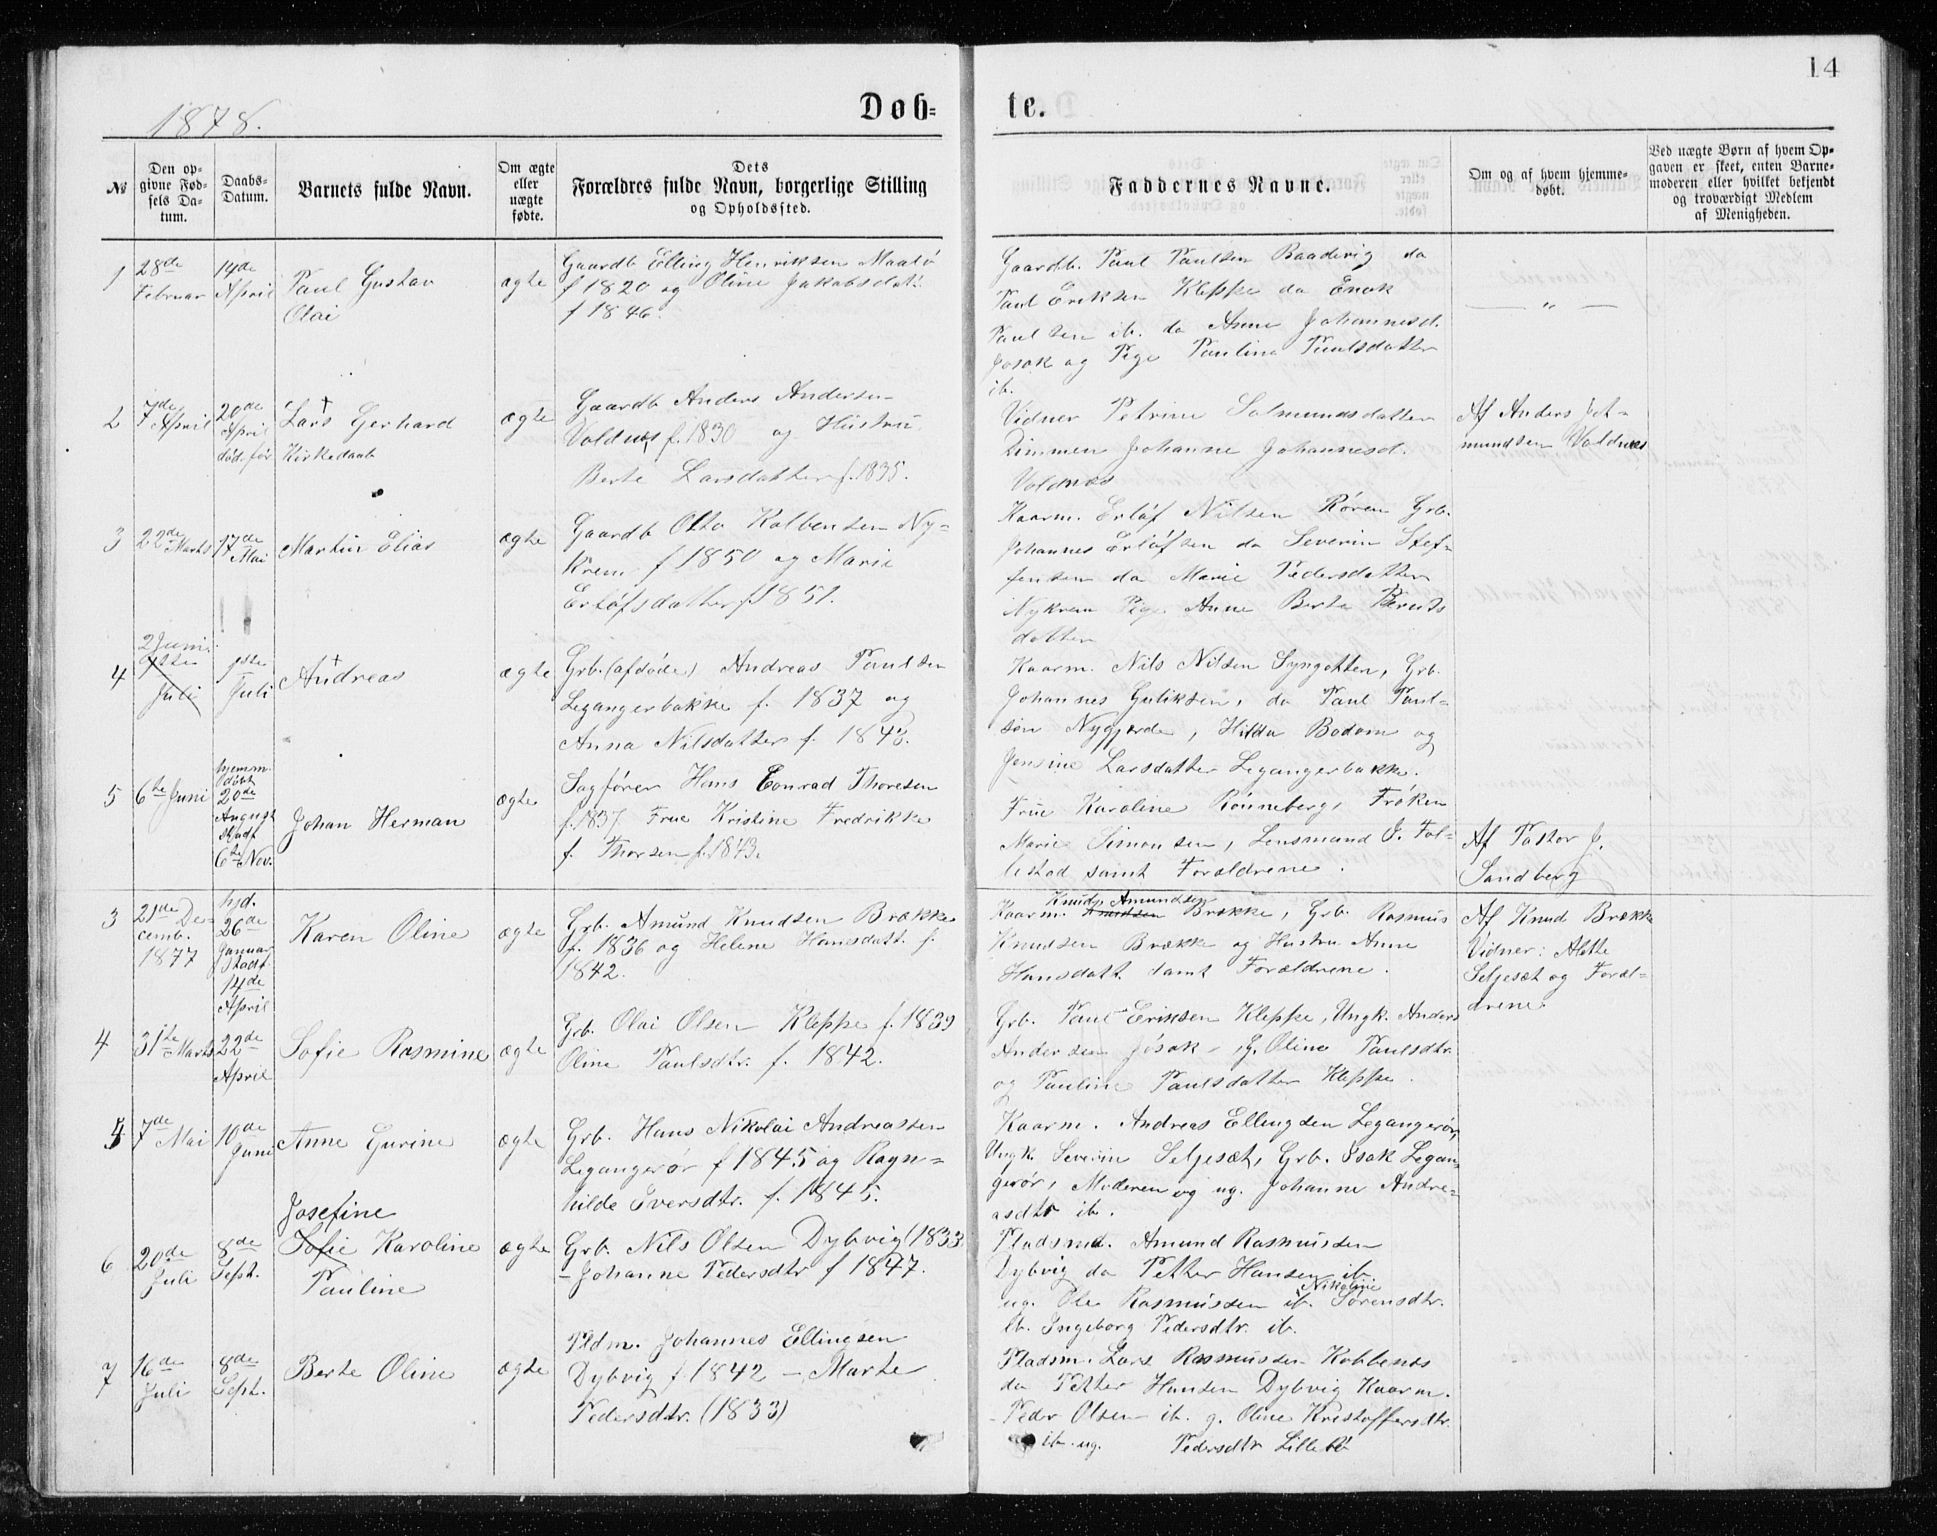 14
1878.
Døb-
te.
№
Den op-
givne Fød-
sels Da-
tum.
Daabs-
Datum.
Barnets fulde Navn.
Om ægte
eller
uægte
fødte.
Dets
Forældres fulde Navn, borgerlige Stilling
og Opholdssted.
Faddernes Navne.
Om og af hvem hjemme-
døbt.
Ved uægte Børn af hvem Op-
gaven er skeet, enten Barne-
moderen eller hvilket bekjendt
og troværdigt Medlem
af Menigheden.
1
28de
Februar
14de
April
Paul Gustav
Olai
ægte
Gaardb Elling Henriksen Maalø
f 1820 og Oline Jakobsdatt.
f 1846.
Gaardb. Paul Paulsen Raadevig do
Paul Eriksen Kleppe do Enok
Paulsen ib. do Anne Johannesd.
Josok og Pige Pauline Paulsdatter
ib.
— „ —
2
7de
April
20de
April
død før
†
Lars Gerhard
Kirkedaab
ægte
Gaardb Anders Andersen
Voldnes f. 1830 og Hustru
Berte Larsdatter f. 1835.
Vidner Petrine Salmundsdatter
Dimmen Johanne Johannesd.
Voldnæs
Af Anders
mundsen Voldnæs
3
22de Marts
17de
Mai
Martin Elias
ægte
Gaardb Otto Kolbensen Ny-
krem f 1850 og Marie
Erlofsdatter f 1851.
Kaarm. Erlóf Nilsen Róren Grb.
Johannes Erlófsen do Severin Stef-
fensen do Marie Pedersdatter
Nykrem Pige Anne Berte Bernts
datter
4
2 Juni
1ste
Juli
1ste
Juli
†
Andreas
ægte
Grb. (afdøde) Andreas Paulsen
Legangerbakke f. 1837 og
Anna Nilsdatter f. 1843.
Kaarm. Nils Nilsen Igngotten, Grb.
Johannes Guliksen, do Paul Paul-
sen Nygjerde, Hilda Bodom og
Jensine Larsdatter Legangerbakke.
5
6te Juni
hjemm.
døbt
20de
August
Stadf
6te Nov.
Johan Herman
ægte
Sagfører Hans Conrad Thoresen
f. 1837 Frue Kristine Fredrikke
f. Thorsen f. 1843.
Frue Karoline Rønneberg, Frøken
Marie Simonsen, Lensmand J. Fol-
lestad samt Forældrene.
Af Pastor J.
Sandberg
3
21de De-
cemb.
1877
hjd.
26de
Januar
Stadf.
14de
April
Karen Oline
ægte
Grb. Amund Knudsen Brække
f. 1836 og Helene Hansdatt. f.
1842.
Knud Amundsen
Kaarm. Knudsen Brække, Grb. Rasmus
Knudsen Brække og Hustru Anne
Hansdatt samt Forældrene.
Af Knud Brække
Vidner: Alette
Seljesæt og Foræl-
drene
4
31te Marts
22de
April
Sofie Rasmine
ægte
Grb. Olai Olsen Kleppe f. 1839
Oline Paulsdtr. f. 1842.
Grb. Paul Eriksen Kleppe, Ungk. Anders
Andersen Josok, G. Oline Paulsdtr.
og Pauline Paulsdatter Kleppe.
5
7de
Mai
10de
Juni
Anne Gurine
ægte
Grb. Hans Nikolai Andreassen
Legangerør f 1845 og Ragn-
hilde Iversdtr. f. 1845.
Kaarm. Andreas Ellingsen Legangerør,
Ungk. Severin Seljesæt, Grb. Isak Legan-
gerør, Moderen og ug. Johanne Andre-
asdtr ib.
6
20de
Juli
8de
Sept.
Josefine
Sofie Karoline
Pauline
ægte
Grb. Nils Olsen Dybvig (1833
– Johanne Pedersdtr f 1847.
Pladsmd. Amund Rasmussen
Dybvig do Petter Hansen ib
ug. Ole Rasmussen ib. Nikoline Sørensdtr.
ib. Ingeborg Pedersdtr. ib.
7
16de
Juli
8de
Sept.
Berte Oline
ægte
Pldm. Johannes Ellingsen
Dybvig f. 1842 – Marte
Pedersdtr. (1833)
Pladsm. Lars Rasmussen Kobbenæs
do Petter Hansen Dybvig Kaarm.
Peder Olsen ib. g. Oline Kristoffersdtr.
ib. ug. Pedersdtr Lillebø